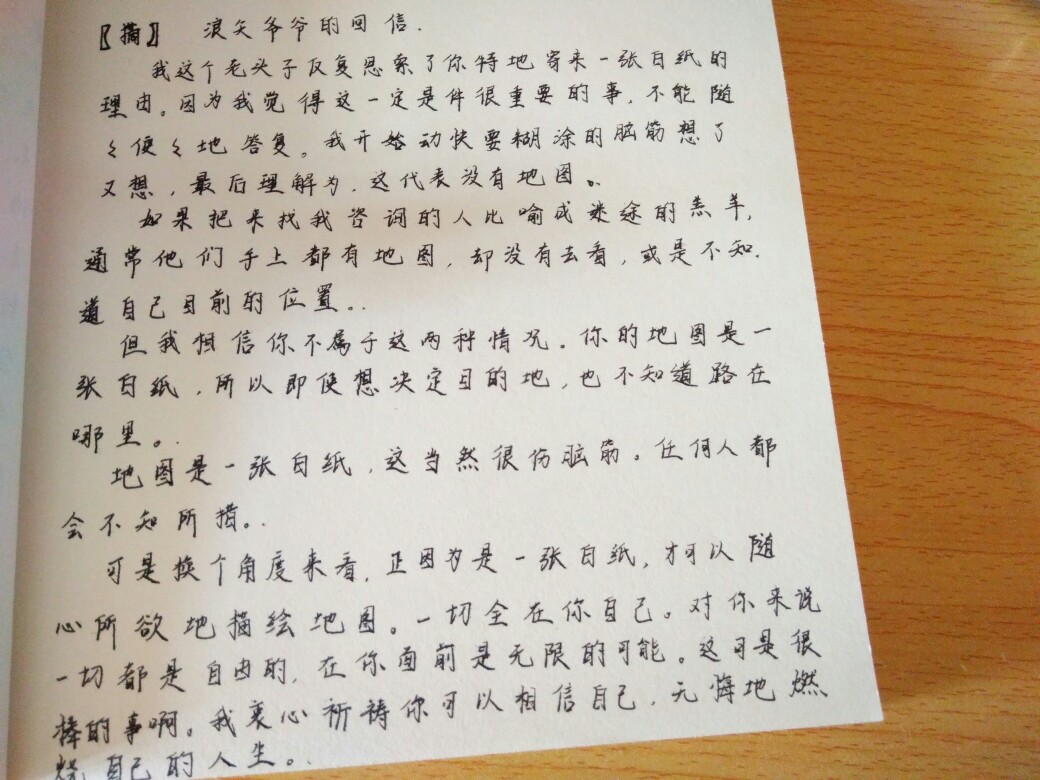 〖摘〗 浪矢爷爷的回信.
我这个老头子反复思索了你特地寄来一张白纸的
理由。因为我觉得这一定是件很重要的事,不能随
々便々地答复。我开始动快要糊涂的脑筋想了
又想,最后理解为,这代表没有地图。
如果把来找我咨询的人比喻成迷途的羔羊,
通常他们手上都有地图,却没有去看,或是不知
道自己目前的位置。
但我相信你不属于这两种情况。你的地图是一
张白纸,所以即使想决定目的地,也不知道路在
哪里。
地图是一张白纸,这当然很伤脑筋。任何人都
会不知所措。
可是换个角度来看,正因为是一张白纸,才可以随
心所欲地描绘地图。一切全在你自己。对你来说
一切都是自由的,在你面前是无限的可能。这可是很
棒的事啊。我衷心祈祷你可以相信自己,无悔地燃
烧自己的人生。